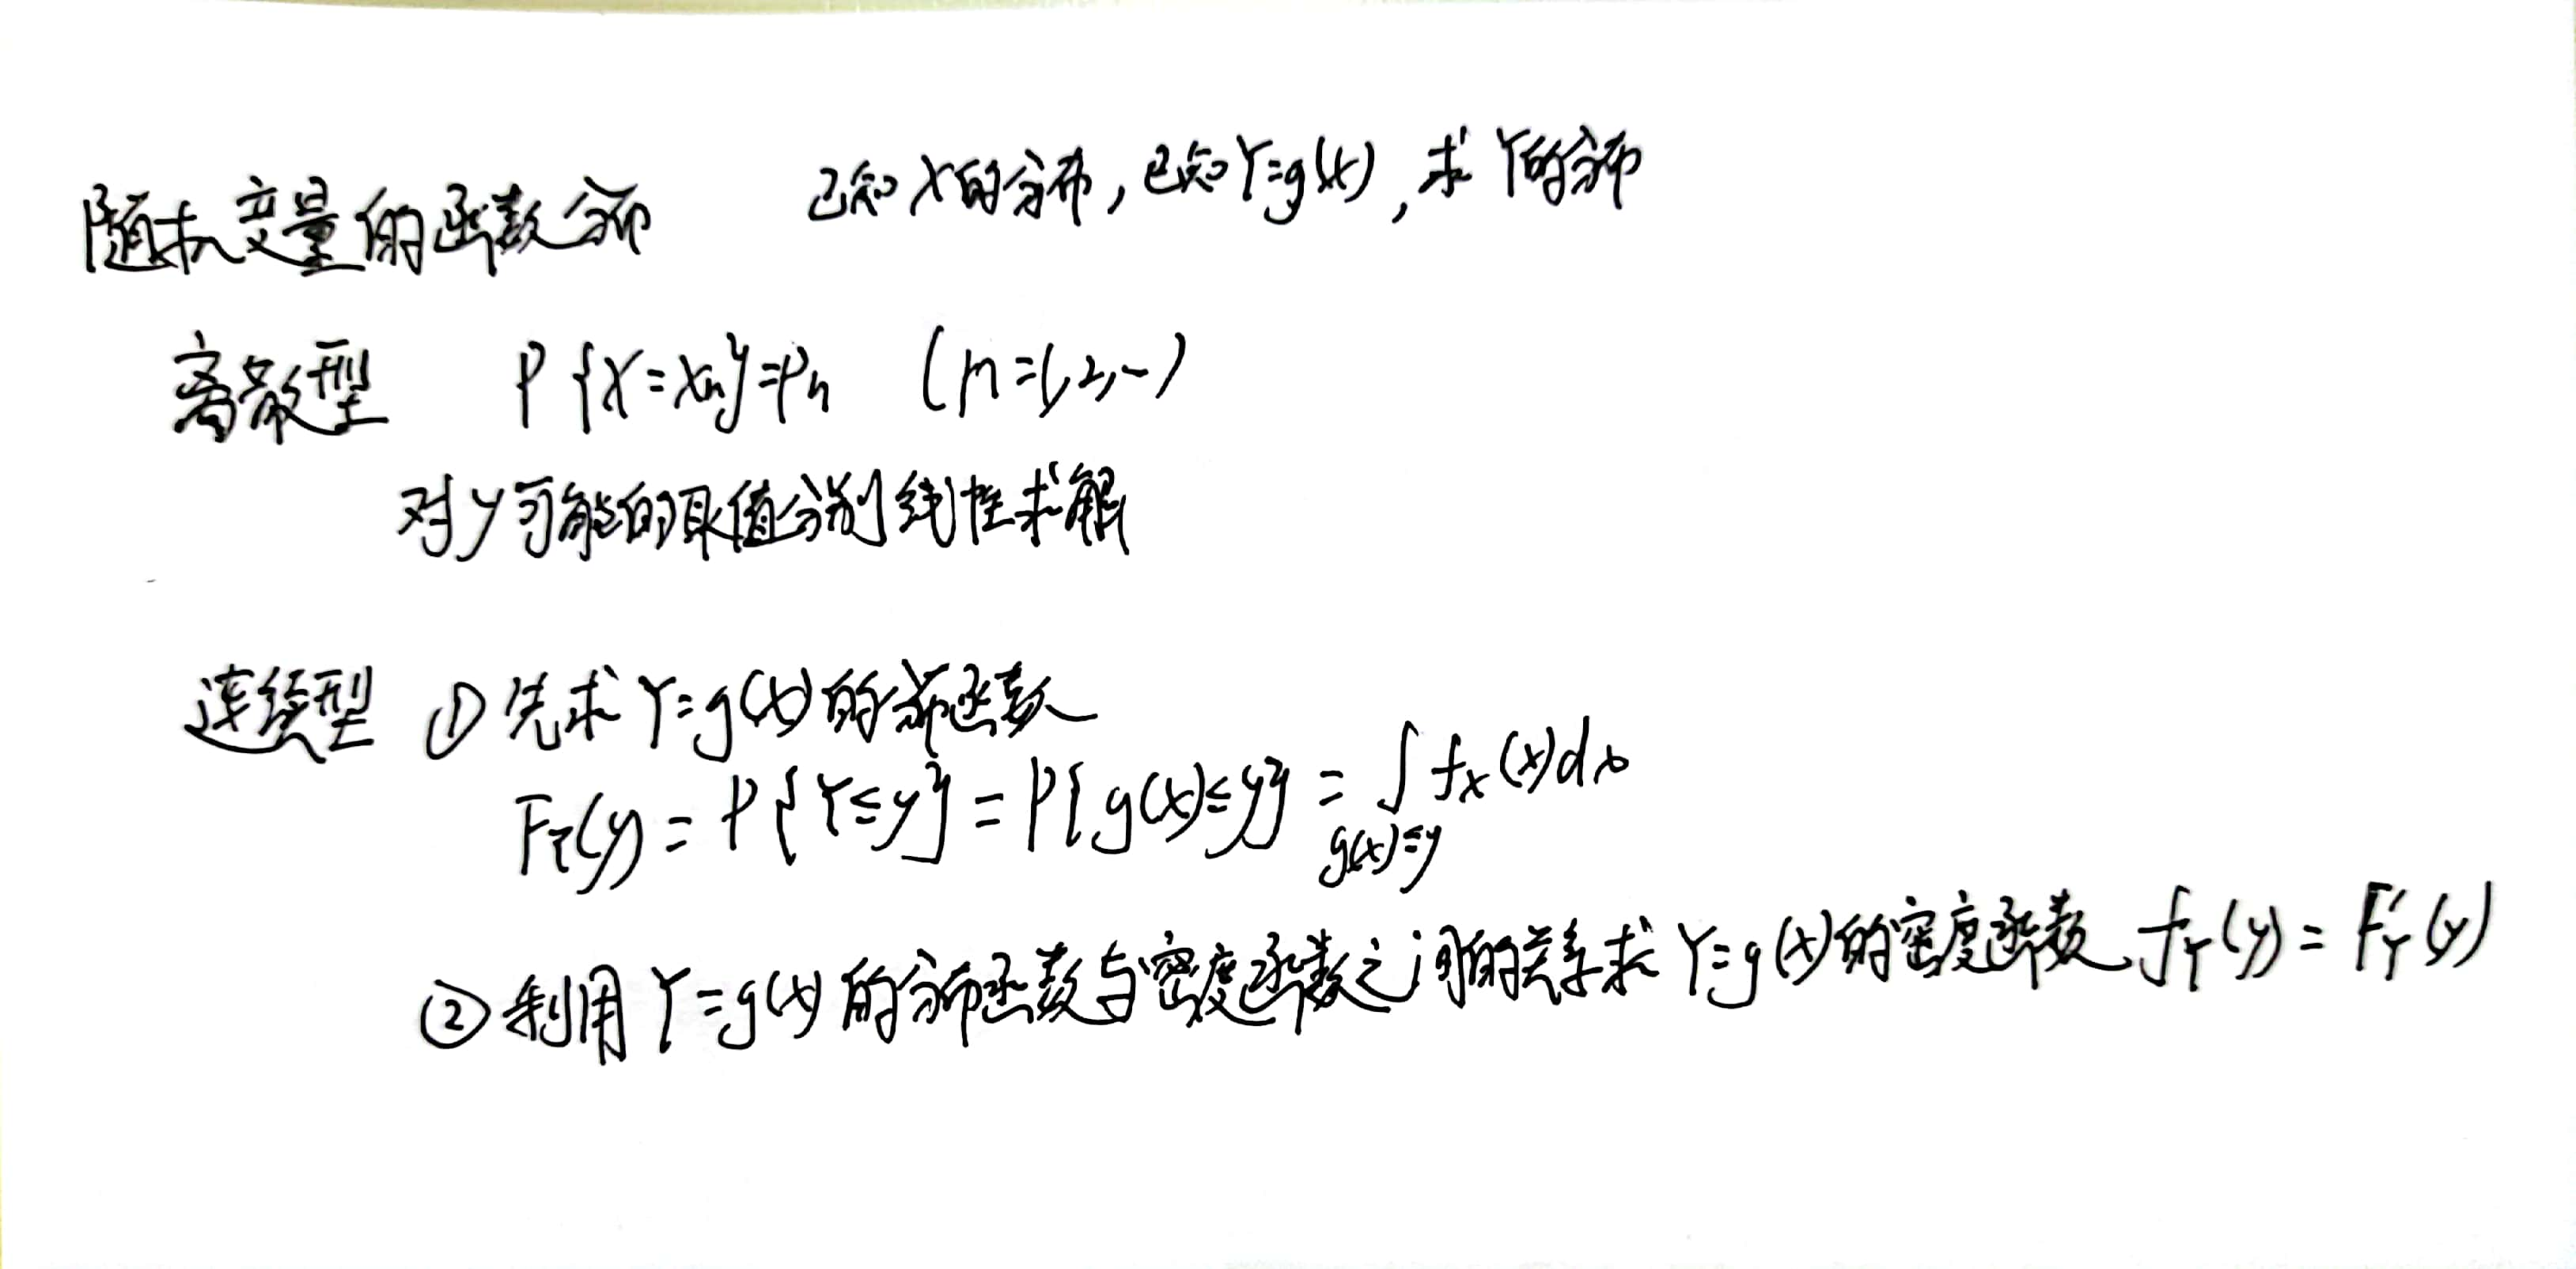 随机变量的函数分布 已知X的分布,已知Y=g(x),求Y的分布
离散型 P{X=xn}=Pn (n=1,2,…)
对y可能的取值分别线性求解
连续型 ① 先求Y=g(x)的分布函数
F_Y(y) = P{Y≤y} = P{g(x)≤y} = ∫ f_X(x)dx
g(x)≤y
② 利用Y=g(x)的分布函数与密度函数之间的关系求Y=g(x)的密度函数 f_Y(y) = F'_Y(y)